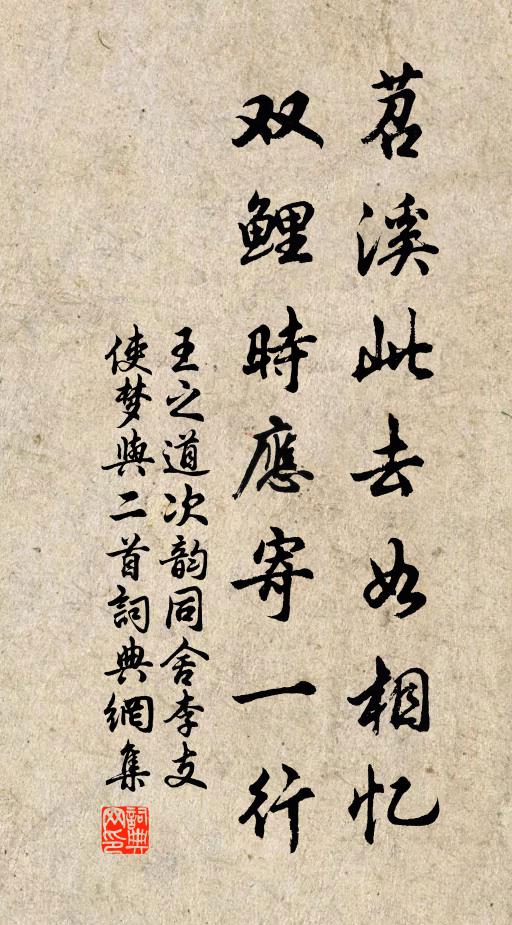 苕溪此去如相忆
双鲤時應寄一行
王之道次韵同舍李支
使梦與二首詞典網集
詞典
网印